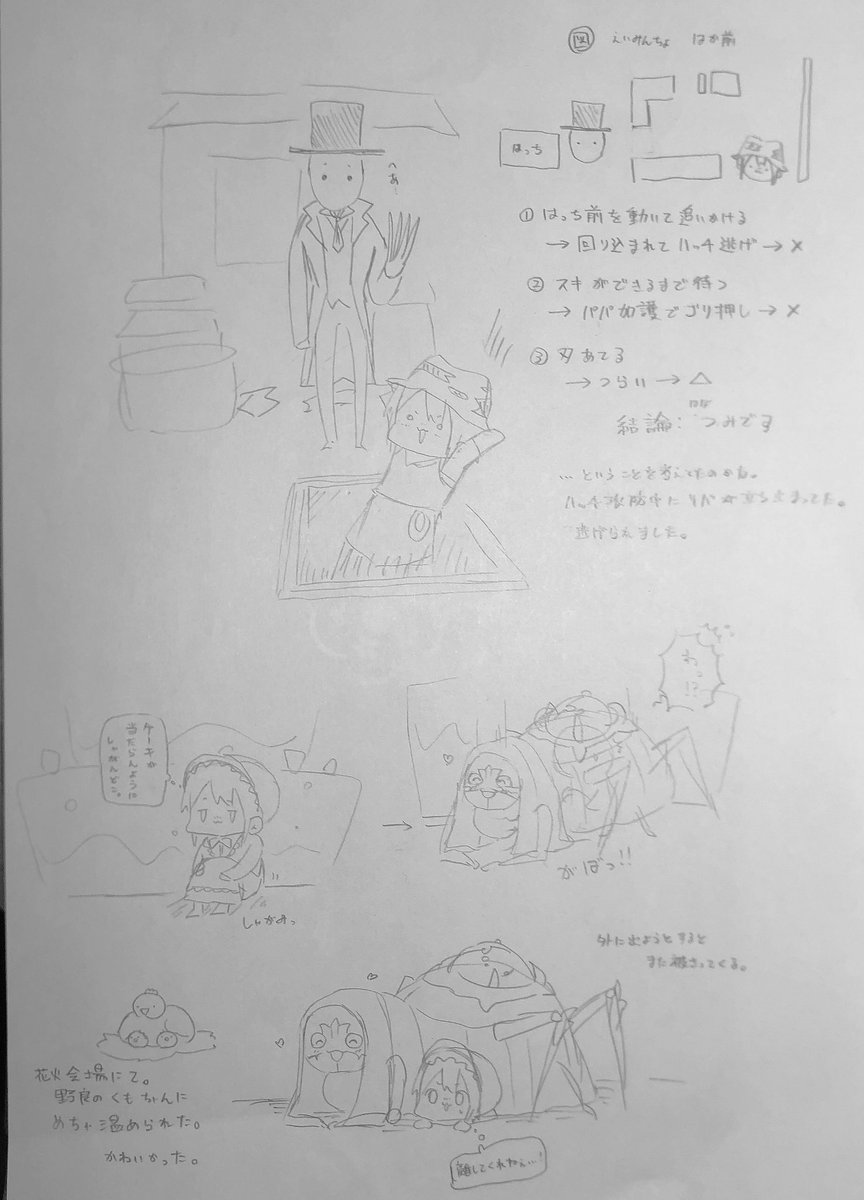 図 えいみんちょ はか前
はっち
へぁ…
① はっち前を動いて追いかける
→ 回り込まれてハッチ逃げ → ×
② スキができるまで待つ
→ パパ加護でゴリ押し → ×
③ 刃あてる
→ つらい → △
結論: つみです
…ということを考えてたのかも。
逃げられました。
ケーキが
当たらんように
しゃがんどこ。
しゃがみっ
→
わっ!?
がばっ!!
外に出ようとすると
また被さってくる。
花火会場にて。
野良のくもちゃんに
めちゃ温められた。
かわいかった。
離してくれねぇ…!